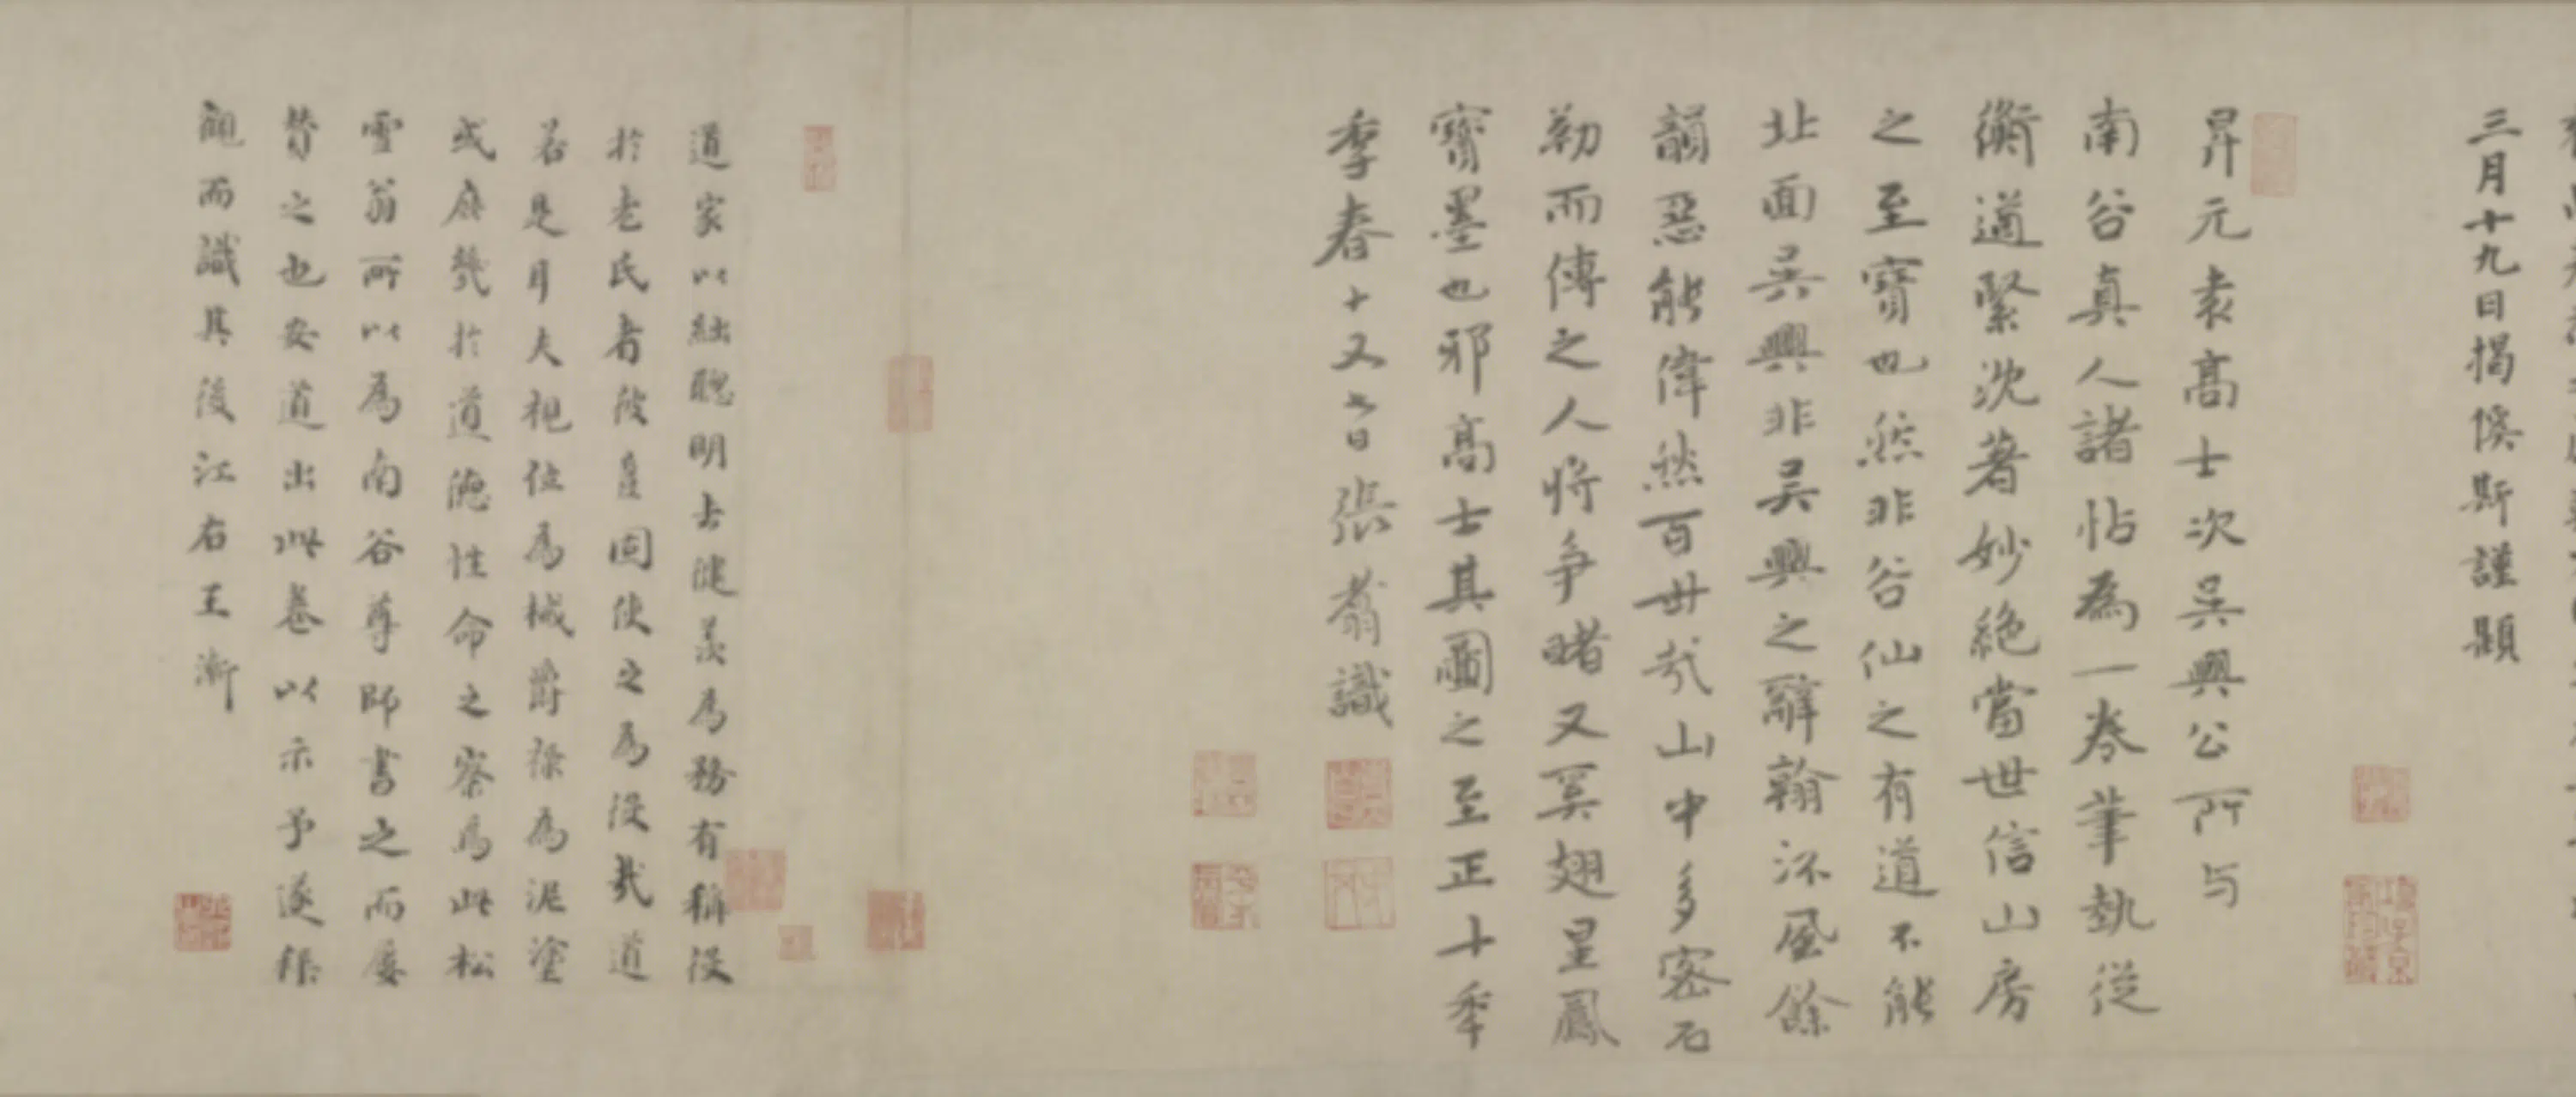 三月十九日揭傒斯謹題
昇元袁髙士次吳興公所与
南谷真人諸帖為一卷筆執從
衡遒緊沈著妙絶當世信山房
之至寶也然非谷仙之有道不能
北面吳興非吳興之辭翰流風餘
韻惡能偉然百世哉山中多密石
勒而傳之人将争睹又奚翅星鳳
寶墨也邪髙士其圖之至正十年
季春十又七日張翥識
道家以絀聰明去健羡為務有稱役
於老氏者彼豈固使之為役哉道
若是耳夫視位為械爵祿為泥塗
或庶幾於道德性命之察焉此松
雪翁所以為南谷尊師書之而屢
贊之也安道出此卷以示予遂樂
觀而識其後江右王漸